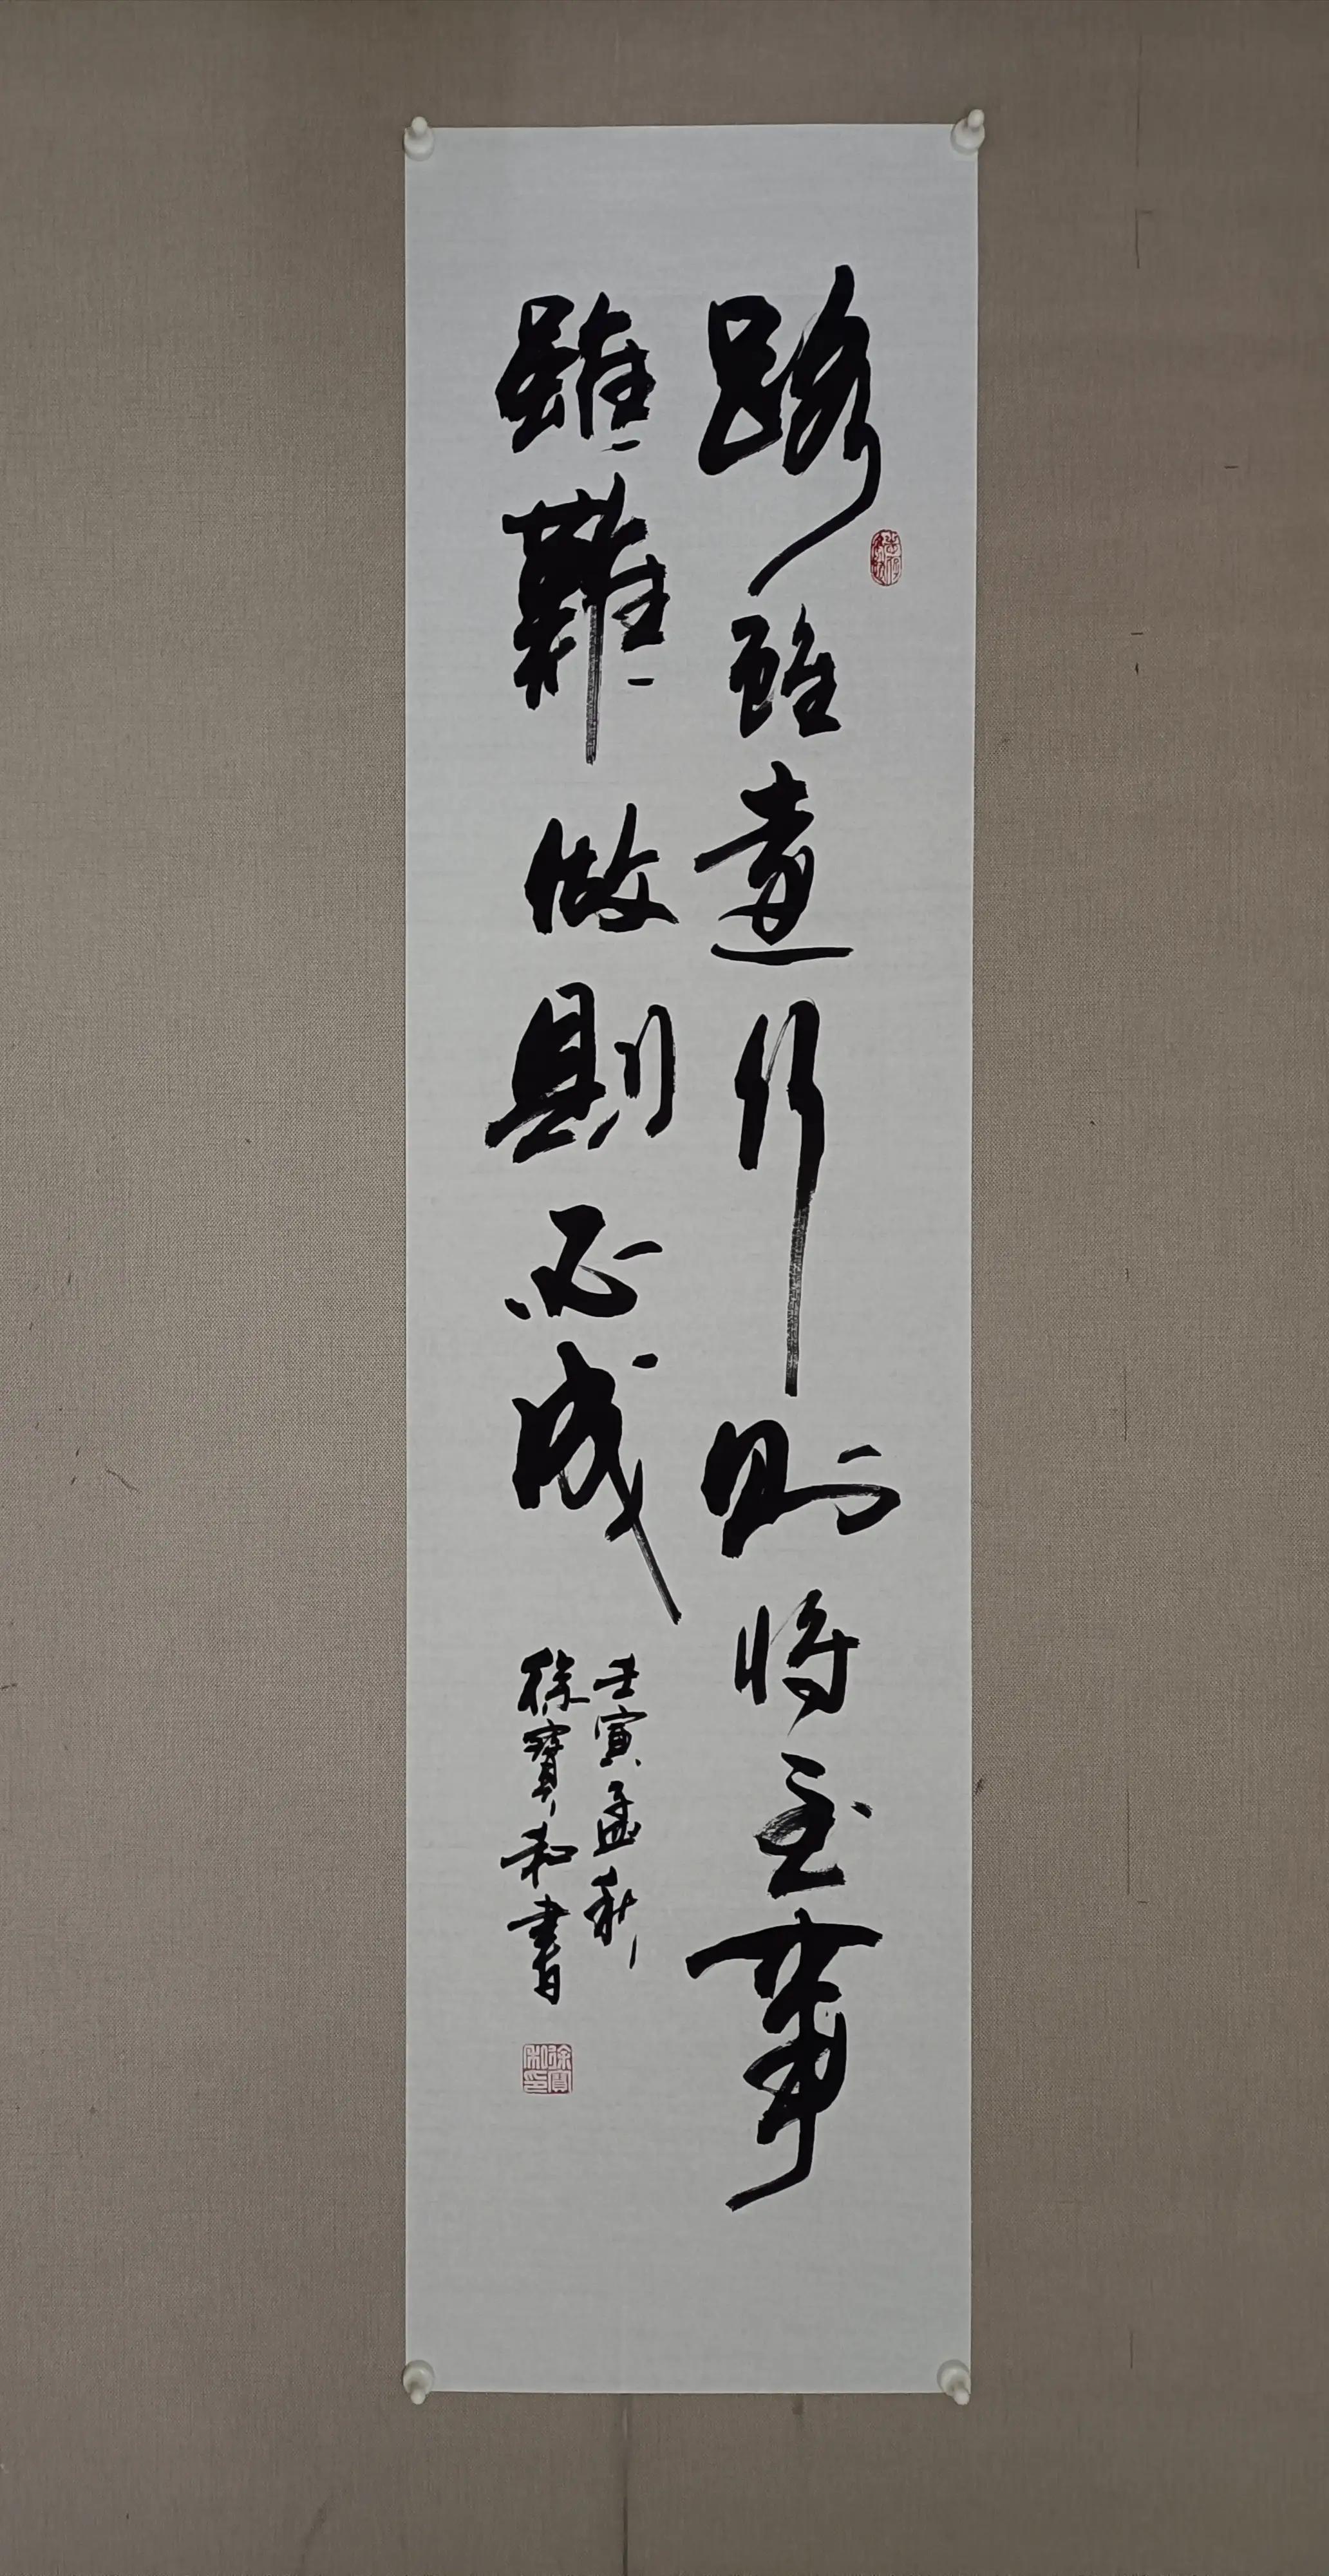 路雖遠行則將至事
雖難做則必成
壬寅孟秋
徐寶和書
徐寶和印